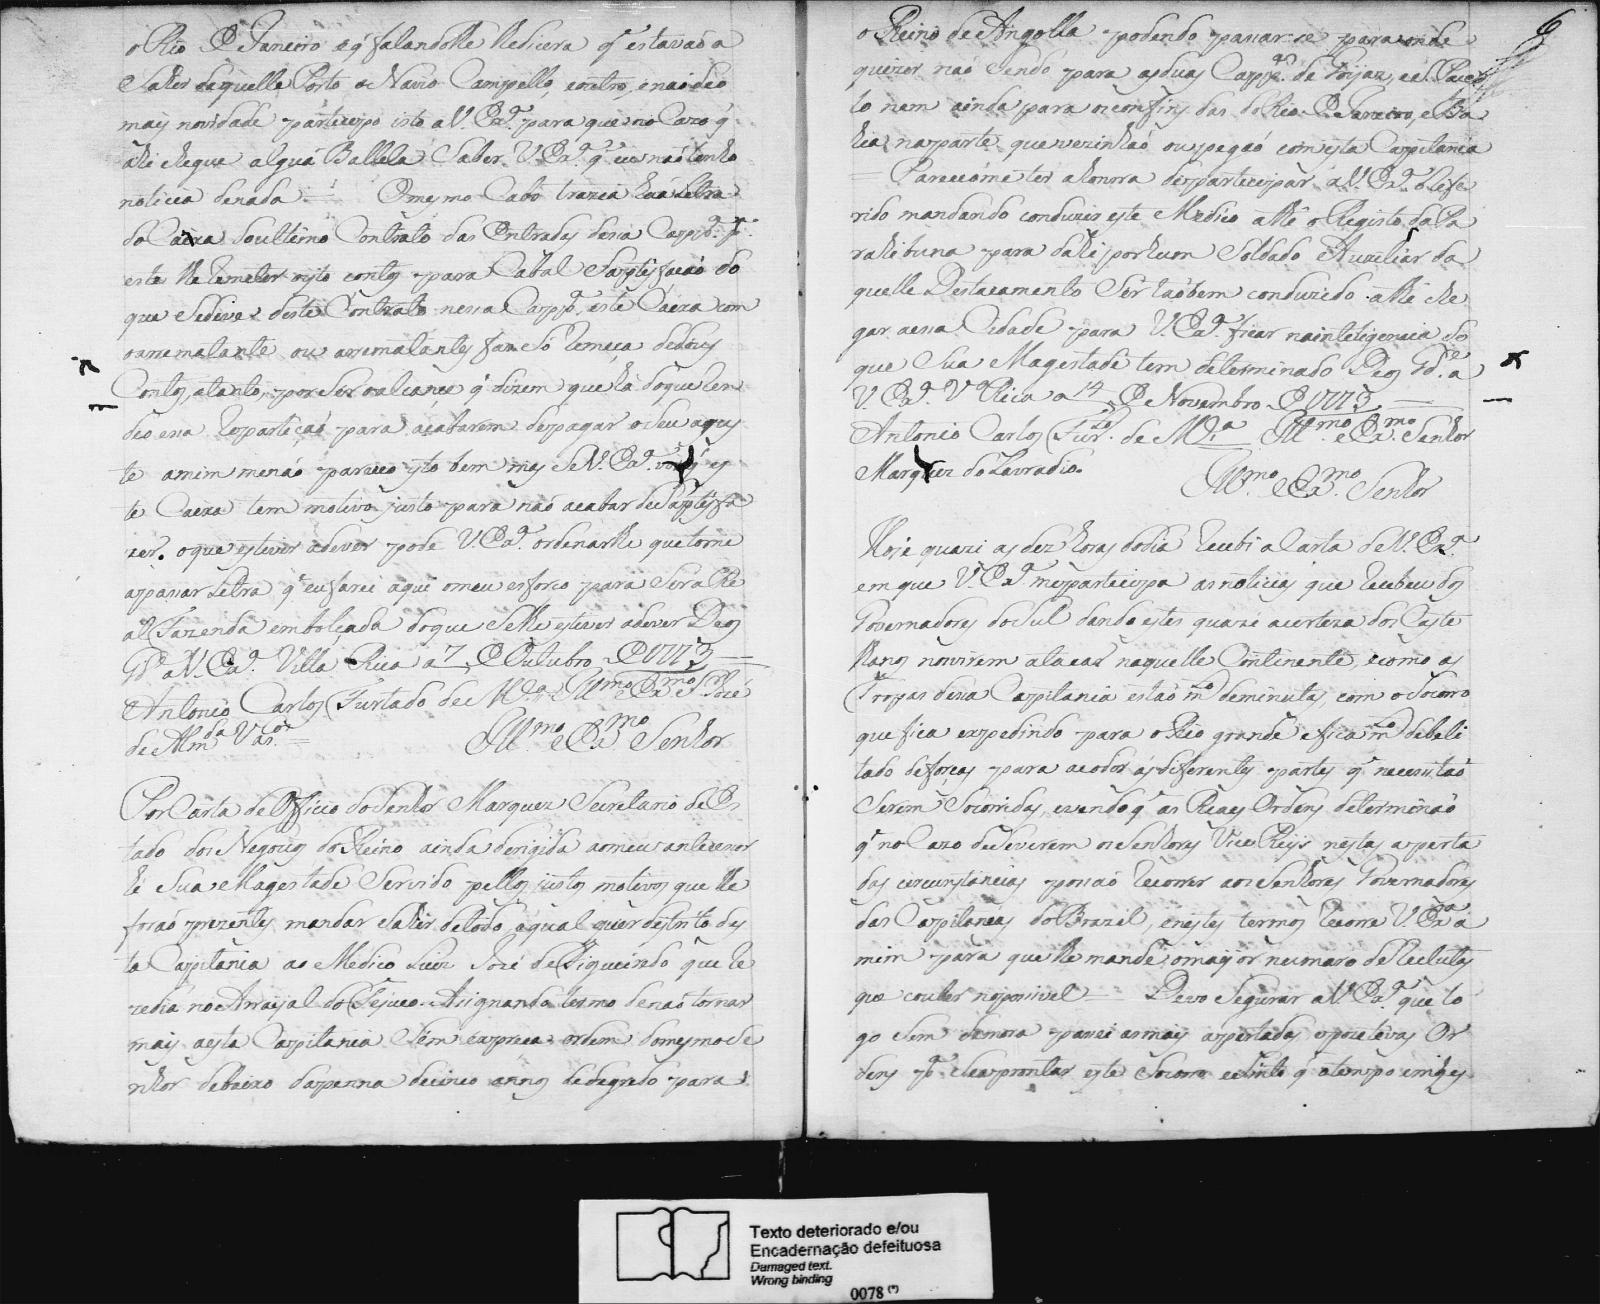 o Rio de Janeiro e q̃ falandolhe lhedicera q̃ estavaõ a
Sahir daquelle Porto o Navio Campello, eoutro, enaõ deo
mais novidade participo isto a V. Ex.ª para que no Cazo q̃
ahi chegue alguã Ballela Saber V. Ex.ª q̃ eu naõ tenho
noticia denada = O mesmo Cabo trazia huã Letra
do Caixa do ultimo Contrato das Entradas desta Capip.ª p.ª
este lhe Remeter oyto contos para Cabal Satisfaçaõ do
que Sedeve deste Contrato nessa Capip.ª este Caixa com
o arrematante ou arrematantes faz Só Remeça dedous
Contos, atanto, por Ser o alcance q̃ dizem que há do que ten
deo essa Repartiçaõ para acabarem de pagar o deu aques
te amim menaõ pareceo isto bem mas Se V. Ex.ª es
te Caixa tem motivo justo para naõ acabar de Satisfa
zer. o que estiver adever pode V. Ex.ª ordenarlhe que torne
a passar Letra q̃ eu farei aqui o meu esforço para Ser a Re
al Fazenda embolçada do que Selhe estiver adever Deos
G.de a V. Ex.ª Villa Rica a 7 de Outubro de 1773
Antonio Carlos Furtado de M.ça Ill.mo e Ex.mo S.r Jozé
de Alm.da Vas.cos =
Ill.mo e Ex.mo Senhor
Por Carta de Officio do Senhor Marquez Secretario de Es
tado dos Negocios do Reino ainda derigida ao meu antecesor
hé Sua Magestade Servido pellos justos motivos que lhe
foraõ prezentes mandar Sahir detodo, e qual quer destrito des
ta Capitania ao Medico Luiz Jozé de Figueiredo que Re
zedia no Arrayal do Tejuco. Asignando termo denaõ tornar
mais a esta Capitania Sem expreça ordem do mesmo Se
nhor debaixo dapenna decinco annos dedegredo para
6
o Reino de Angolla podendo passar-se para onde
quizer naõ Sendo para as duas Capip.as de Goyaz, e S. Pau
lo nem ainda para os confins das do Rio de Janeiro, e Ba
hia, na parte que vezinhaõ ou pegaõ com esta Capitania
= Pareceome ter a honra de participar a V. Ex.ª o Refe
rido mandando conduzir este Medico athé o Registo da Pa
rahibuna para dahi por hum Soldado Auxiliar da
quelle Destacamento Ser taõbem conduzido athé che
gar aessa Cidade para V. Ex.ª ficar na inteligencia do
que Sua Magestade tem determinado Deos G.de a
V. Ex.ª V.ª Rica a 14 de Novembro de 1773
Antonio Carlos Fur.do de M.ça Ill.mo e Ex.mo Senhor
Marquez do Lavradio.
Ill.mo e Ex.mo Senhor
Hoje quazi as dez horas do dia Recebi a Carta de V. Ex.ª
em que V. Ex.ª me participa as noticias que Recebeu dos
Governadores do Sul dando estes quazi acerteza dos Caste
lhanos nos virem atacar naquelle Continente, ecomo as
Tropas desta Capitania estaõ m.to deminutas, com o Socorro
que fica expedindo para o Rio grande e fica m.to debeli
tado de forças para acodir ás differentes partes q̃ necessitaõ
Serem Socorridas, evendo q̃ as Reaes Ordens determinaõ
q̃ no Cazo de Severem os Senhores Vice Reys nestas aperta
das circunstancias possaõ Recorrer aos Senhores Governadores
das Capitanias do Brazil, enestes termos Recorre V. Ex.ª a
mim para que lhe mande, o mayor numaro de Reclutas
que couber no possivel = Devo Segurar a V. Ex.ª que Lo
go Sem demora passei as mais apertadas, e pozetivas Or
dens p.ª Se aprontar este Socorro e Sinto q̃ o tempo emigos
Texto deteriorado e/ou
Encadernação defeituosa
Damaged text.
Wrong binding
0078 (*)